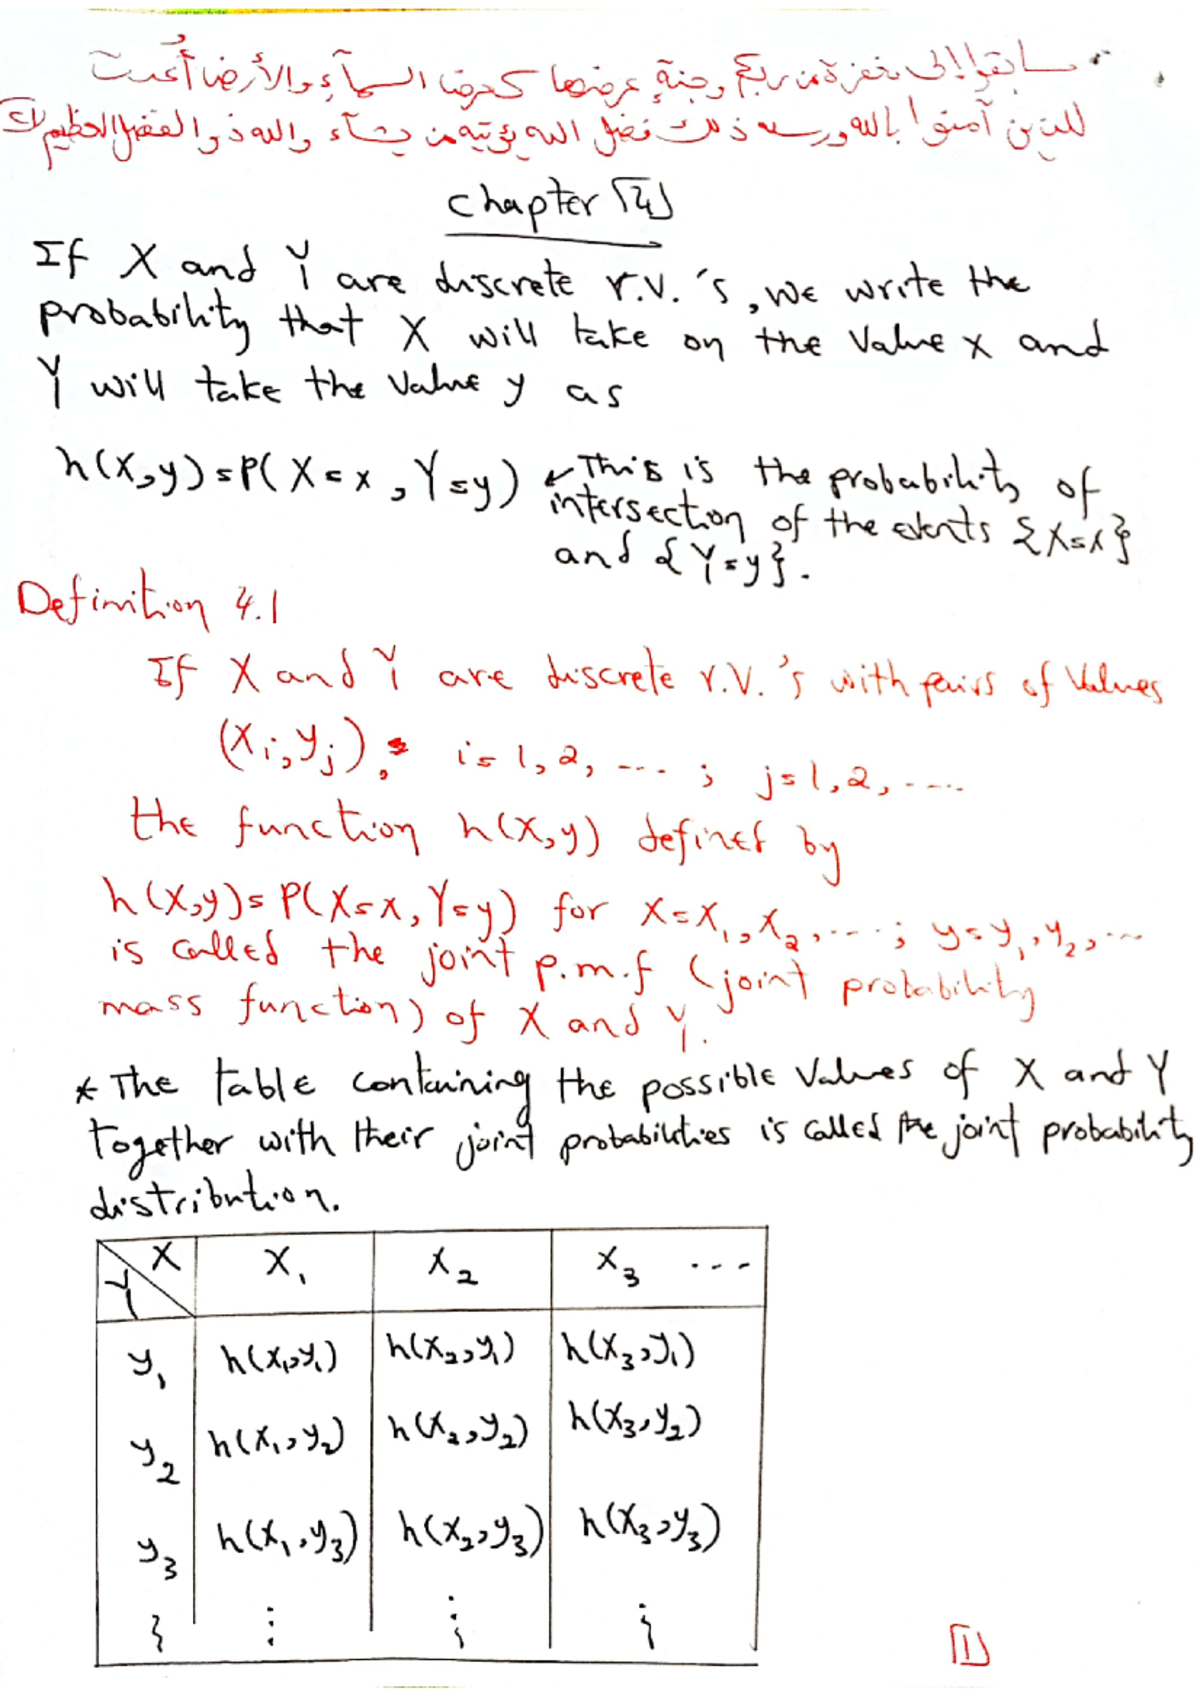 سابقوا إلى مغفرة من ربكم وجنة عرضها كعرض السمآء والأرض أُعدت
للذين آمنوا بالله ورسله ذلك فضل الله يؤتيه من يشآء والله ذو الفضل العظيم
chapter [4]
If X and Y are discrete r.v.'s, we write the
probability that X will take on the value x and
Y will take the value y as
h(x,y) = P(X=x, Y=y) ← This is the probability of
intersection of the events {X=x}
and {Y=y}.
Definition 4.1
If X and Y are discrete r.v.'s with pairs of values
(xi, yj), i=1,2, ... ; j=1,2, ....
the function h(x,y) defined by
h(x,y) = P(X=x, Y=y) for x=x1, x2, ... ; y=y1, y2, ...
is called the joint p.m.f (joint probability
mass function) of X and Y.
* The table containing the possible values of X and Y
together with their joint probabilities is called the joint probability
distribution.
X Y x1 x2 x3 ...
y1 h(x1,y1) h(x2,y1) h(x3,y1)
y2 h(x1,y2) h(x2,y2) h(x3,y2)
y3 h(x1,y3) h(x2,y3) h(x3,y3)
⋮ ⋮ ⋮ ⋮
[1]